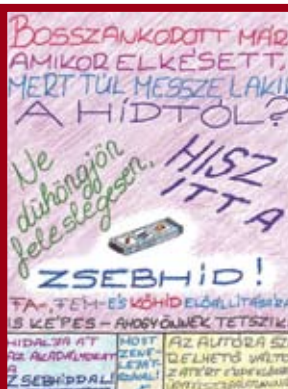 BOSSZANKODOTT MÁR,
AMIKOR ELKÉSETT,
MERT TÚL MESSZE LAKIK
A HÍDTÓL?
Ne
dühöngjön
feleslegesen,
HISZ
ITT A
ZSEBHÍD!
FA-, FÉM- ÉS KŐHÍD ELŐÁLLÍTÁSÁRA
IS KÉPES - AHOGY ÖNNEK TETSZIK
HIDALJA ÁT
AZ AKADÁLYOKAT
A ZSEBHÍDDAL!
MOST
ZENE-
AZ AUTÓRA SZ